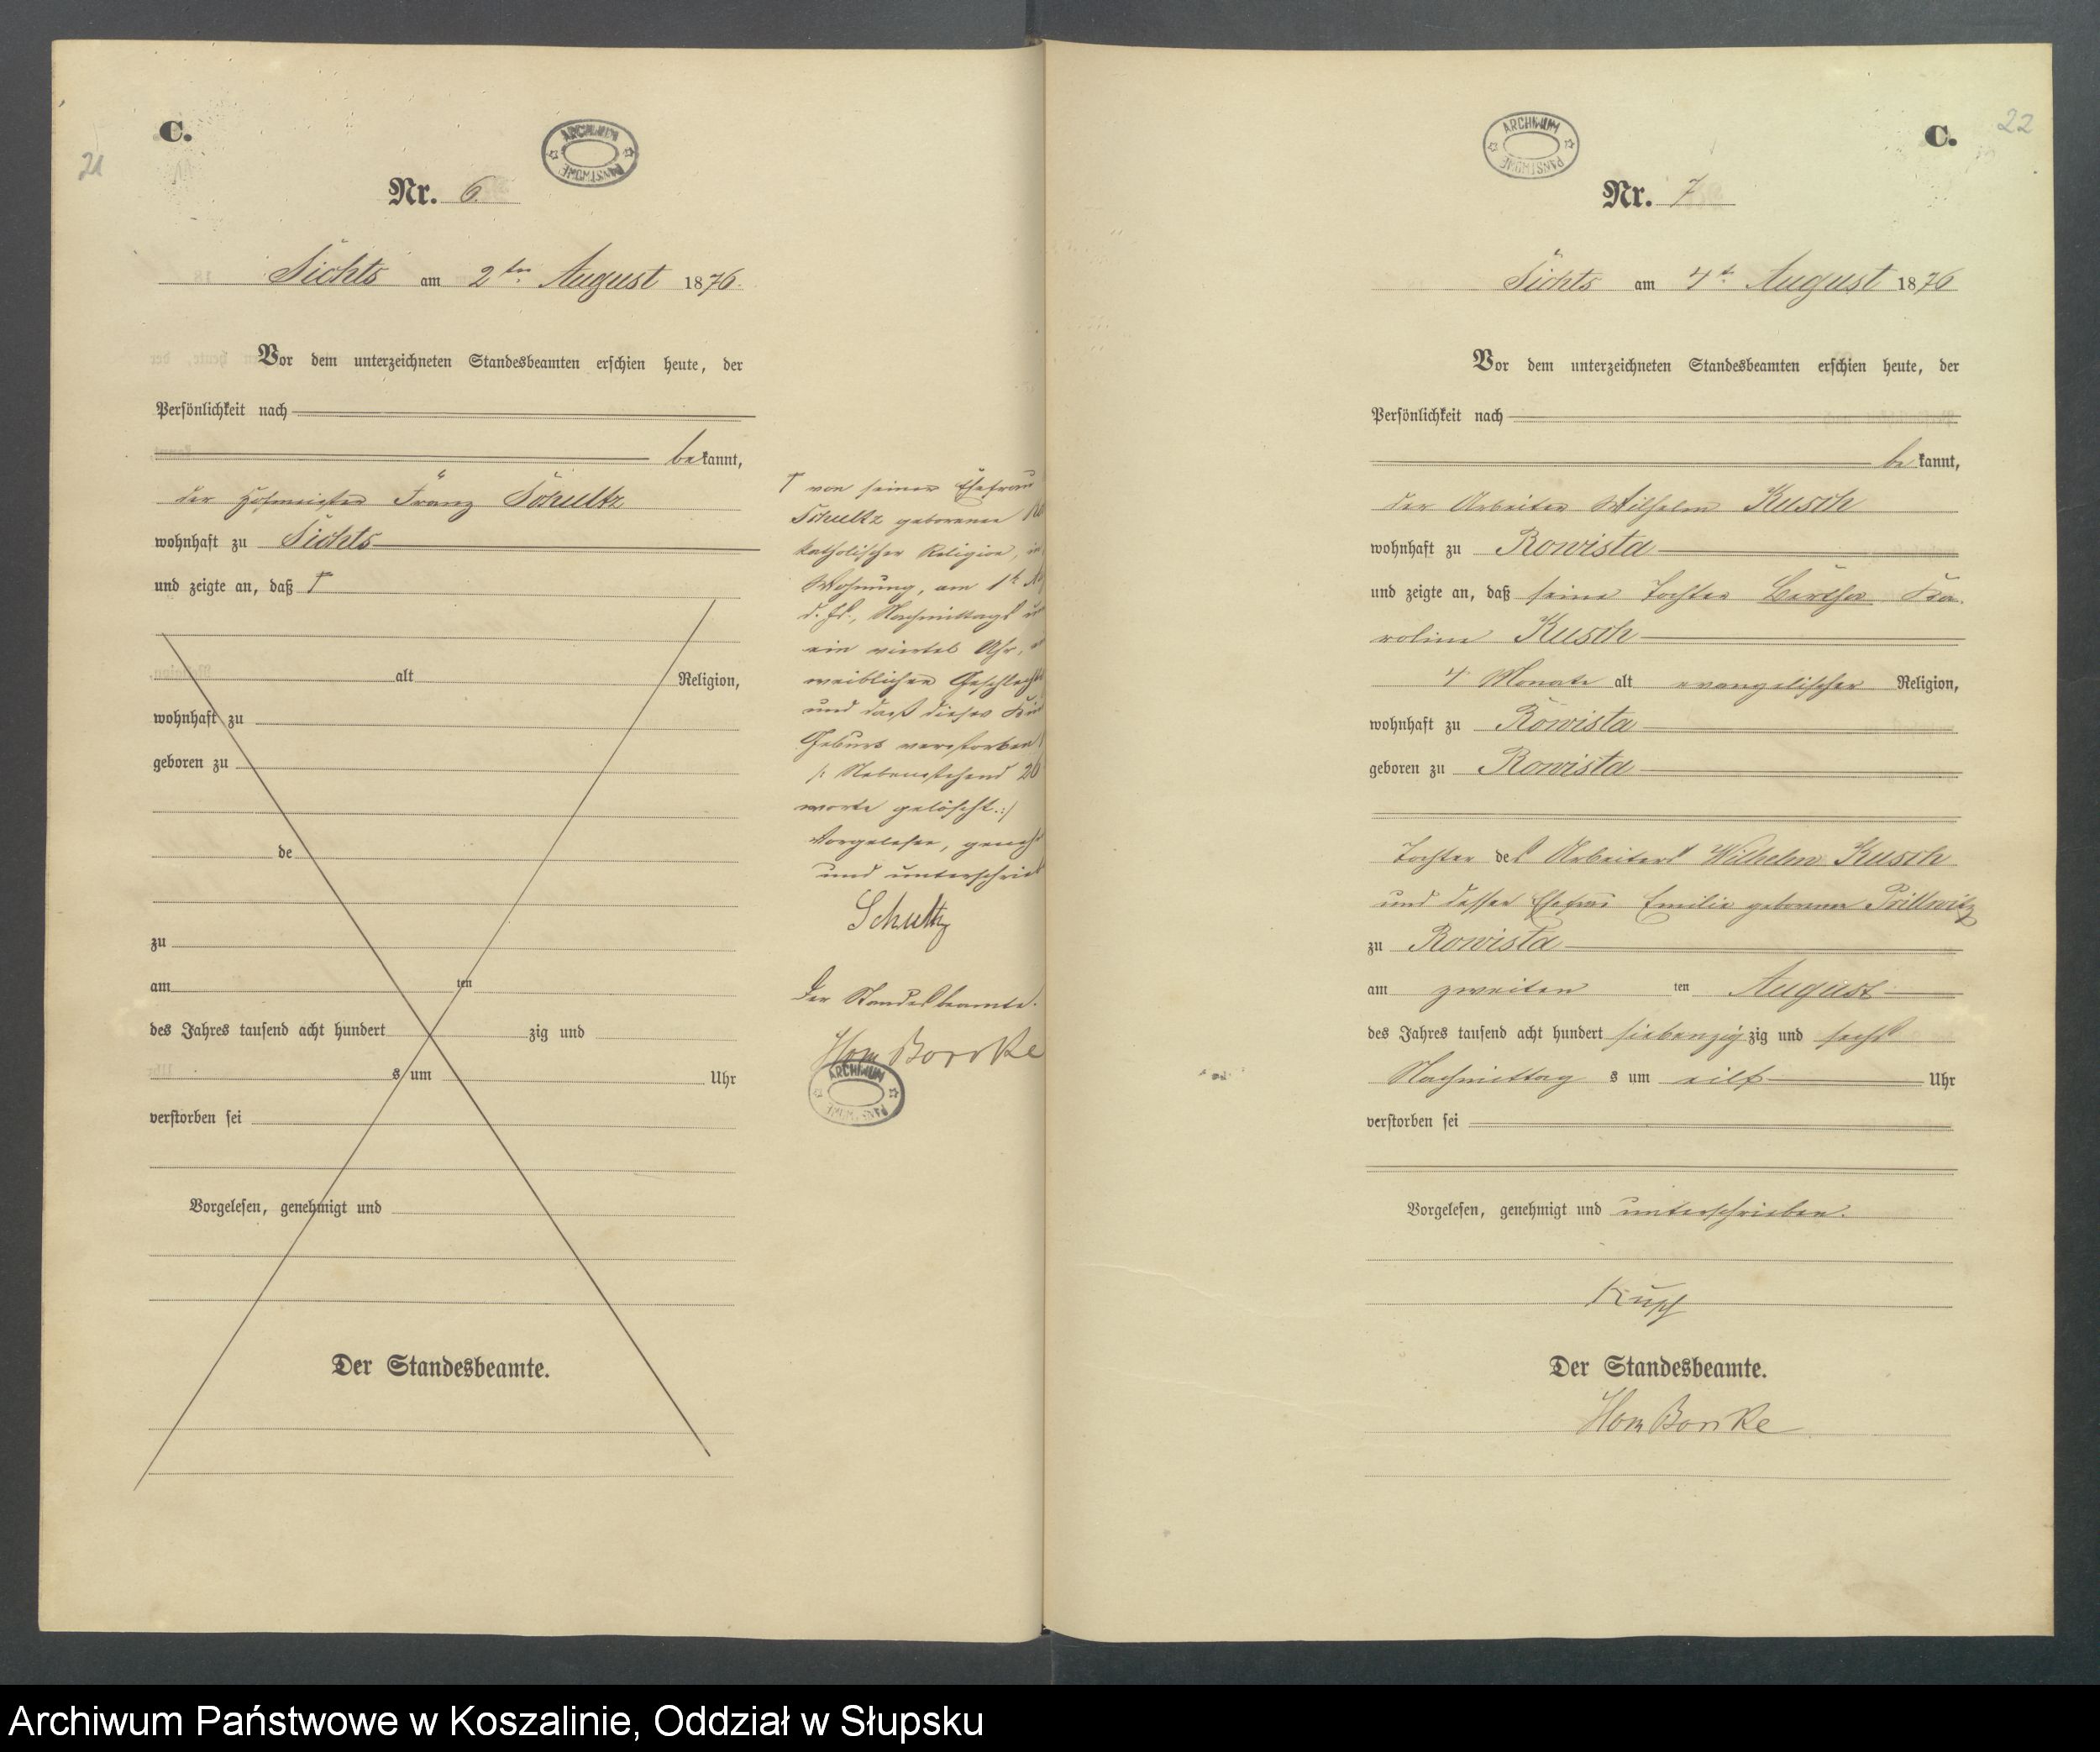 21
C.
ARCHIWUM PAŃSTWOWE
Nr. 6.
Sichts am 2ten August 1876.
Vor dem unterzeichneten Standesbeamten erschien heute, der
Persönlichkeit nach
bekannt,
der Hofmeister Franz Schultz
wohnhaft zu Sichts
und zeigte an, daß
alt Religion,
wohnhaft zu
geboren zu
de
zu
am ten
des Jahres tausend acht hundert zig und
s um Uhr
verstorben sei
Vorgelesen, genehmigt und
Der Standesbeamte.
von seiner Ehefrau
Schultz geborenen
katholischer Religion, in
Wohnung, am 1t
d. Js., Nachmittags um
ein viertel Uhr,
weiblichen Geschlechts
und daß dieses Kind
Geburt verstorben
/: Nebenstehend 26
worte gelöscht. :/
Vorgelesen, geneh
und unterschrieb
Schultz
Der Standesbeamte.
ARCHIWUM PAŃSTWOWE
22
C.
ARCHIWUM PAŃSTWOWE
Nr. 7
Sichts am 4t August 1876
Vor dem unterzeichneten Standesbeamten erschien heute, der
Persönlichkeit nach
bekannt,
der Arbeiter Wilhelm Kusch
wohnhaft zu Rowista
und zeigte an, daß seine Tochter Bertha Ka
roline Kusch
4 Monate alt evangelischer Religion,
wohnhaft zu Rowista
geboren zu Rowista
Tochter des Arbeiters Wilhelm Kusch
und dessen Ehefrau Emilie geborenen Prillwitz
zu Rowista
am zweiten ten August
des Jahres tausend acht hundert siebenzig zig und sechs
Nachmittag s um eilf Uhr
verstorben sei
Vorgelesen, genehmigt und unterschrieben.
Der Standesbeamte.
Archiwum Państwowe w Koszalinie, Oddział w Słupsku